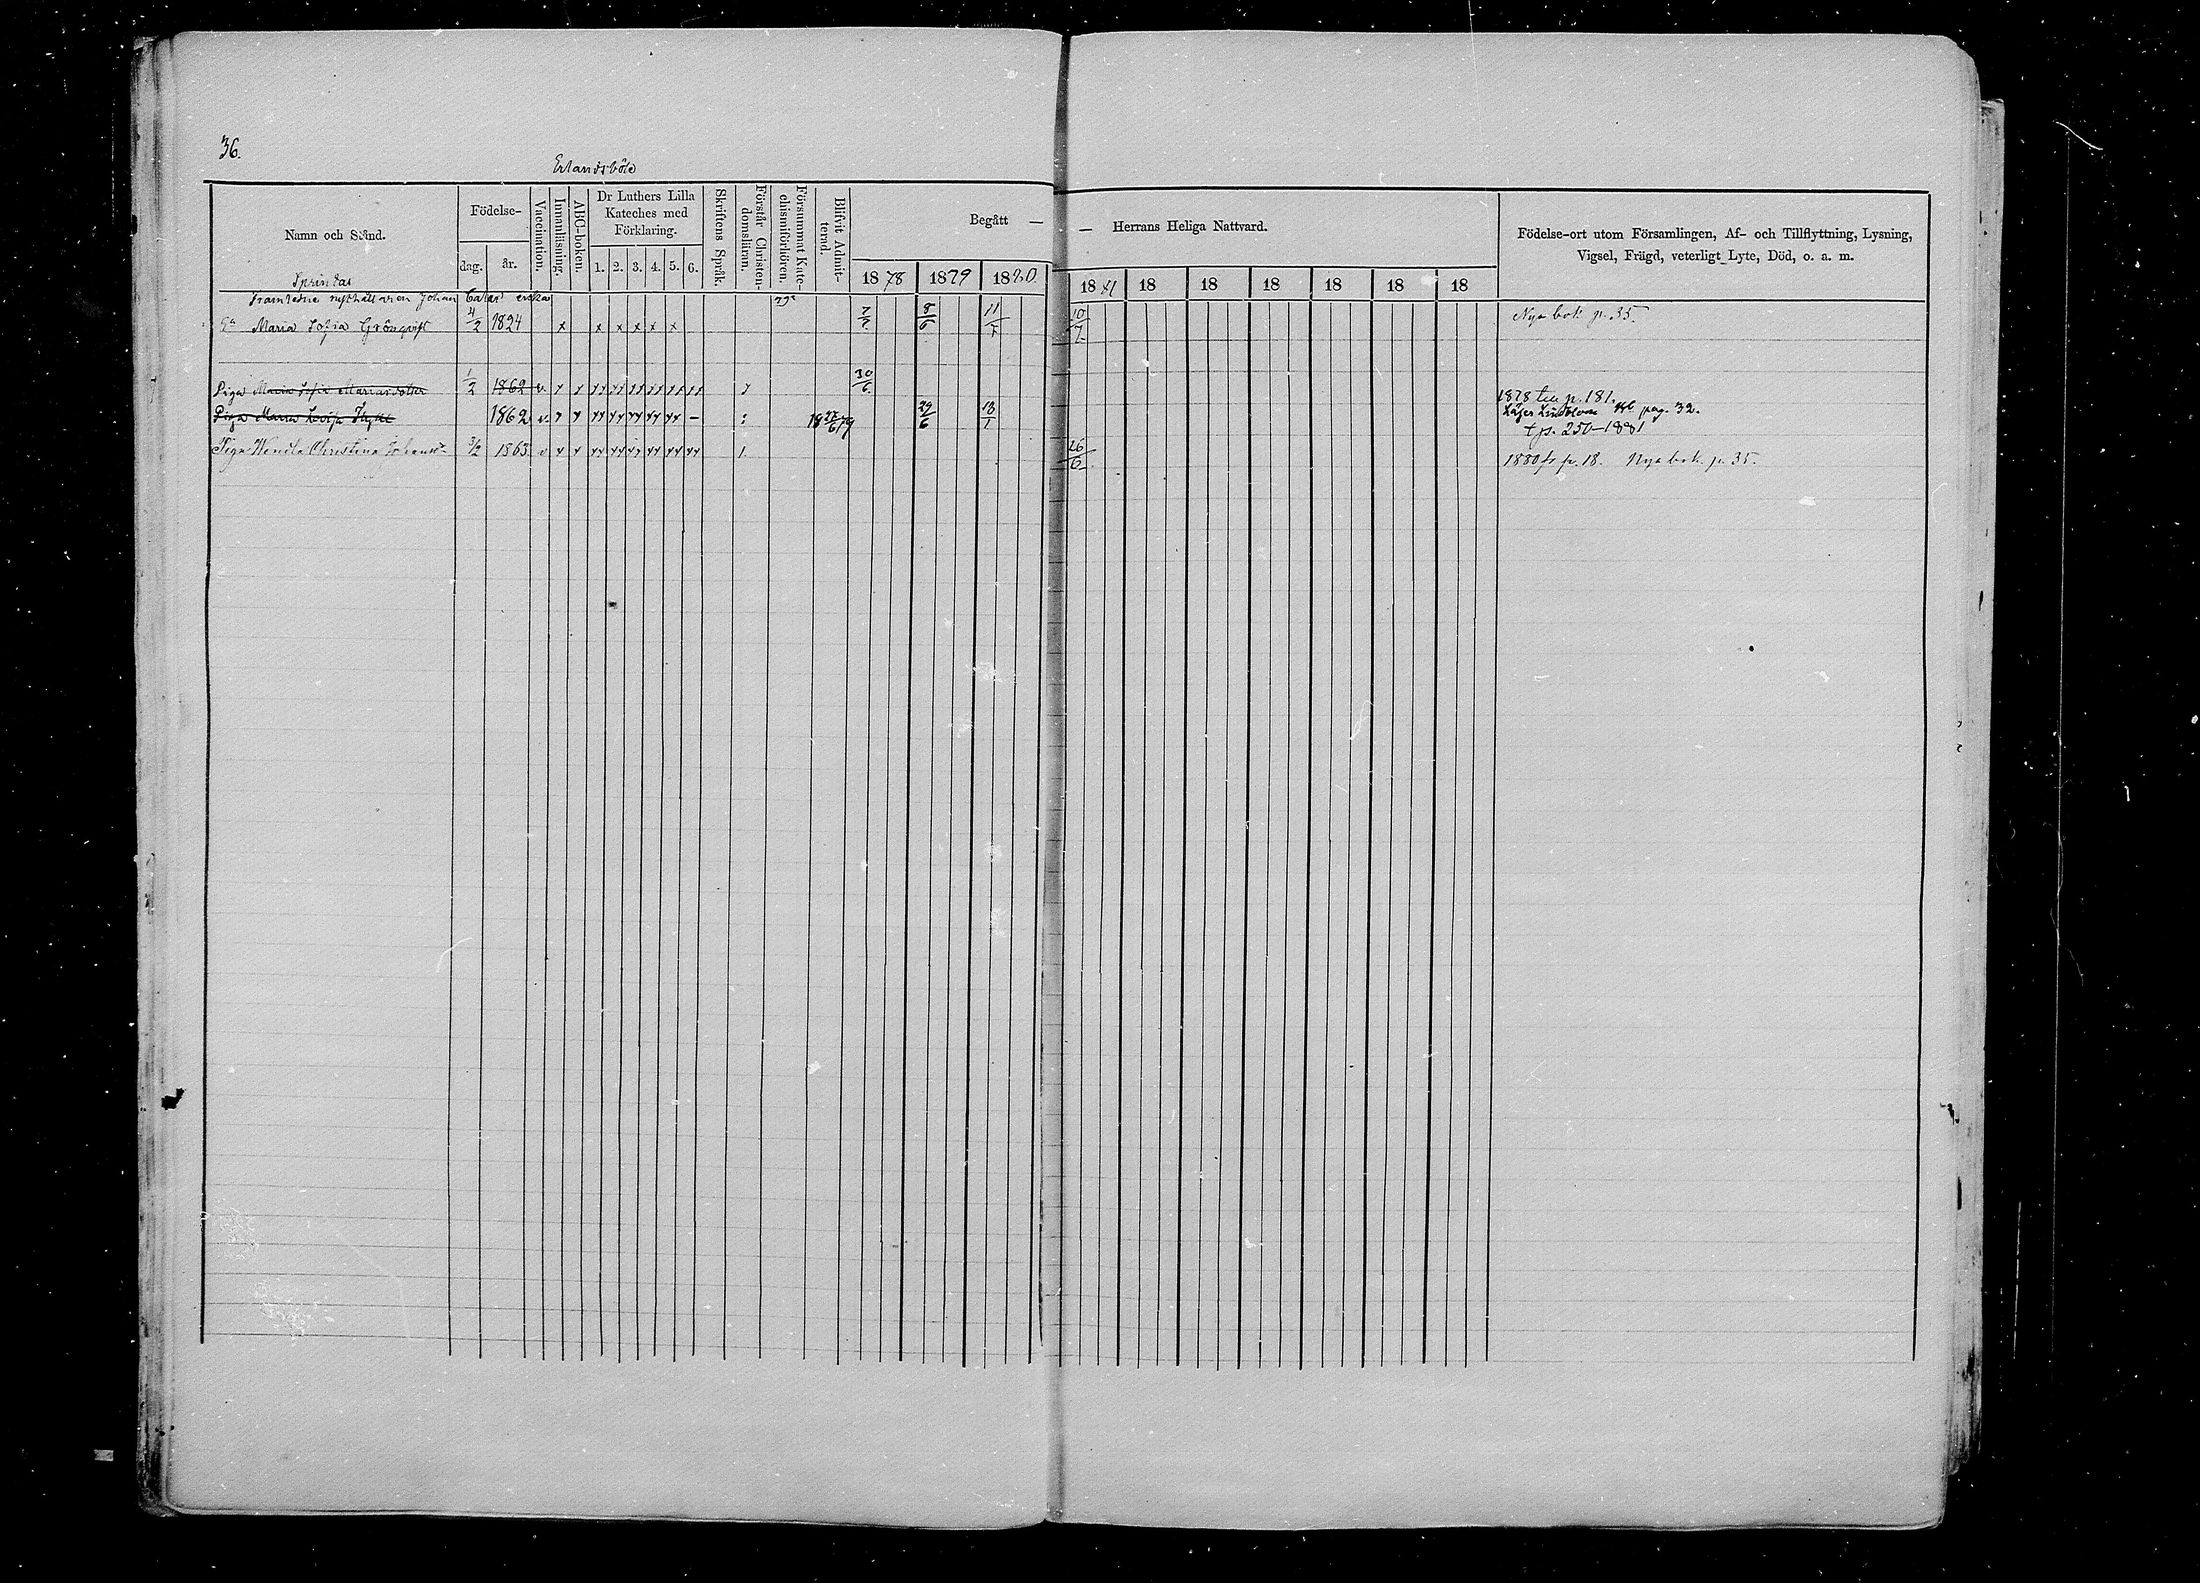 36.
Erlandsböle
Namn och Stånd.
Födelse-
dag.
år.
Vaccination.
Innanläsning.
ABC-boken.
Dr Luthers Lilla
Kateches med
Förklaring.
1. 2. 3. 4. 5. 6.
Skriftens Språk.
Förstår Christen-
domsläran.
Försummat Kate-
chismiförhören.
Blifvit Admit-
terad.
Begått —
— Herrans Heliga Nattvard.
1878 1879 1880
1881 18 18 18 18 18 18
Födelse-ort utom Församlingen, Af- och Tillflyttning, Lysning,
Vigsel, Frägd, veterligt Lyte, Död, o. a. m.
Sprindas
Framledne Johan
Ea Maria Sofia Grönqvist 4/2 1824 x x x x x x 7/7 8/6 11/7 10/7 Nya bok p. 35.
Piga Maria Sofia 1/2 1862 v. 30/6 1878 till p. 181.
Piga Maria Lovisa 1862 v. – 18 27/6 79 29/6 18/1 pag. 32.
t p. 250–1881
Piga Wendla Christina Johansd. 3/2 1863 v 26/6 1880 fr p. 18. Nya bok. p. 35.